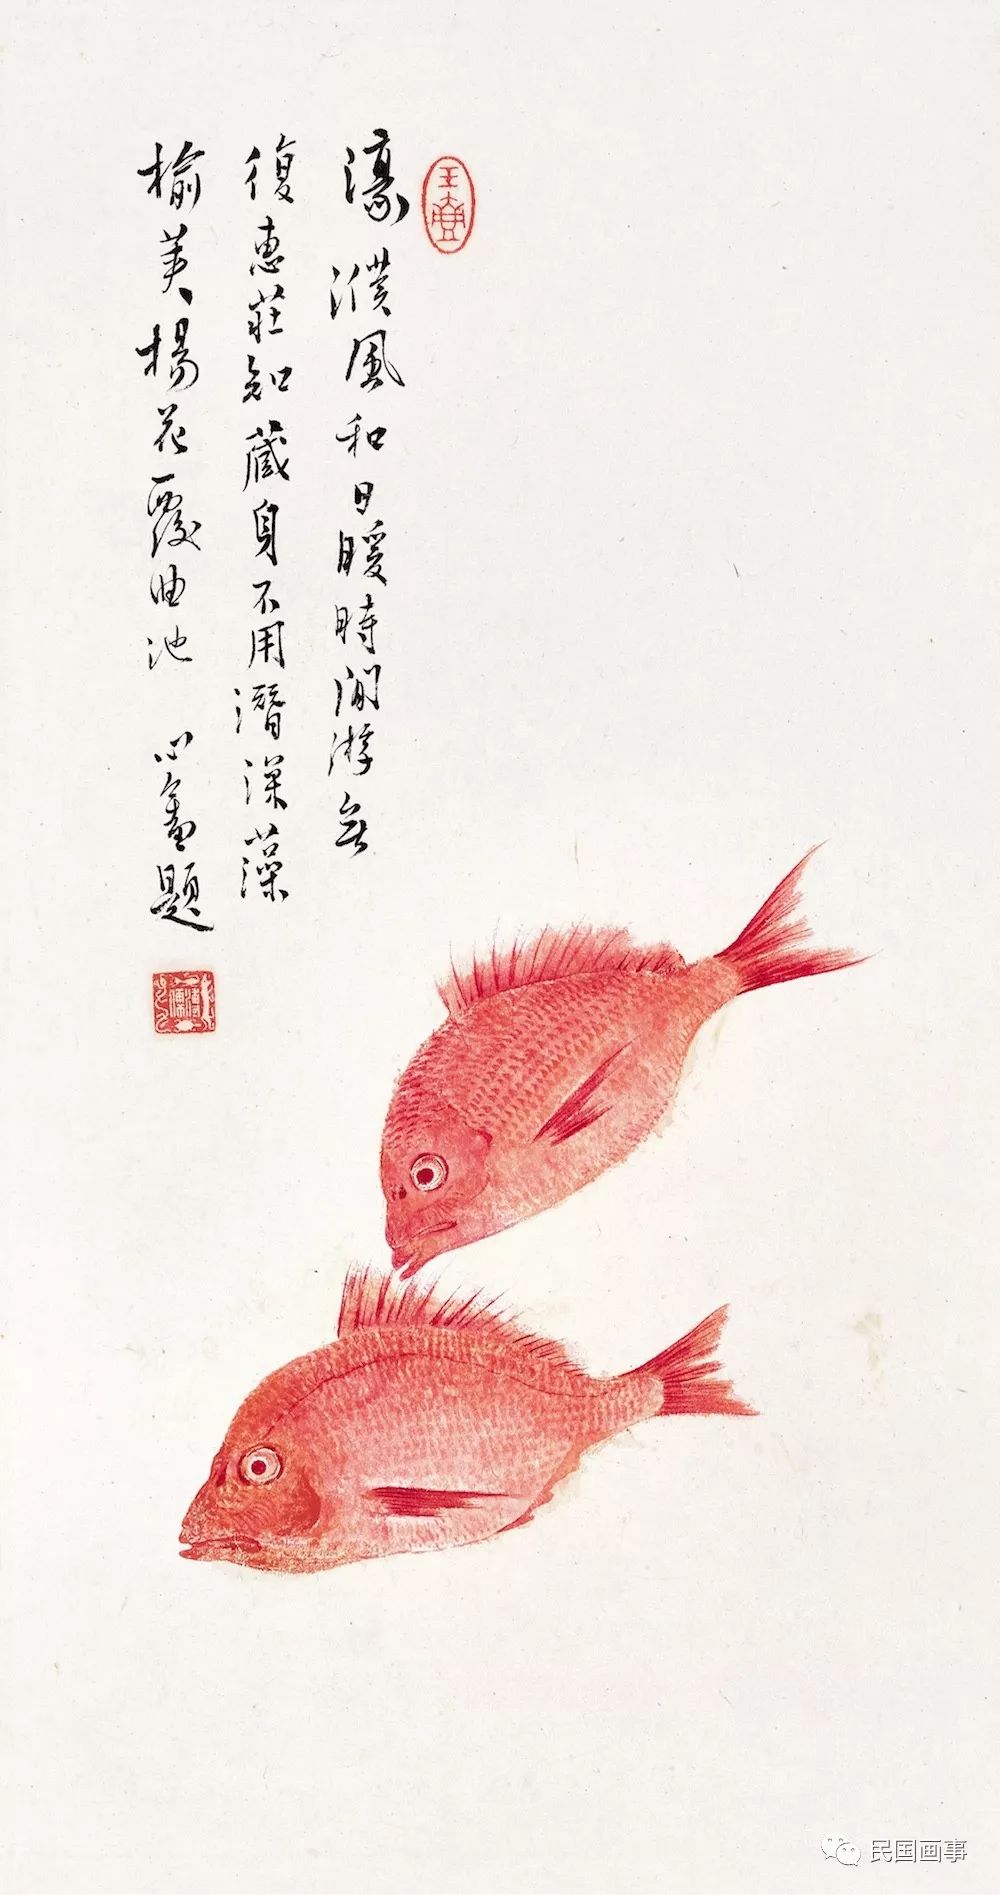 濠濮風和日暖時閒游無
復惠莊知藏身不用潛深藻
榆莢楊花覆曲池 心畬題
玉壺
溥儒
民国画事